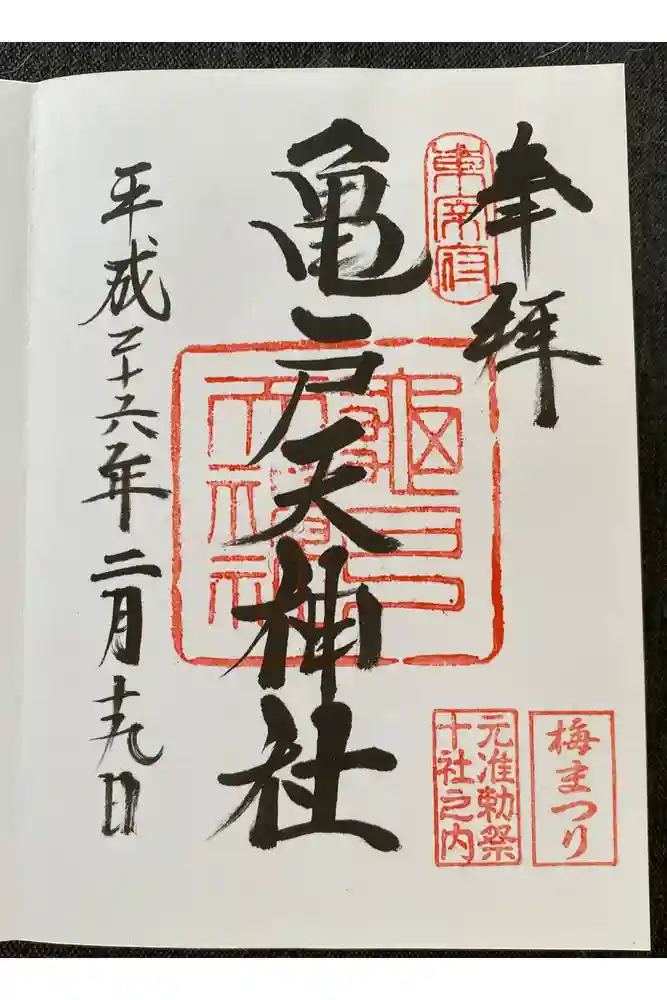 奉拝
東宰府
梅まつり
元准勅祭
十社之内
亀戸天神社
平成二十六年二月十九日